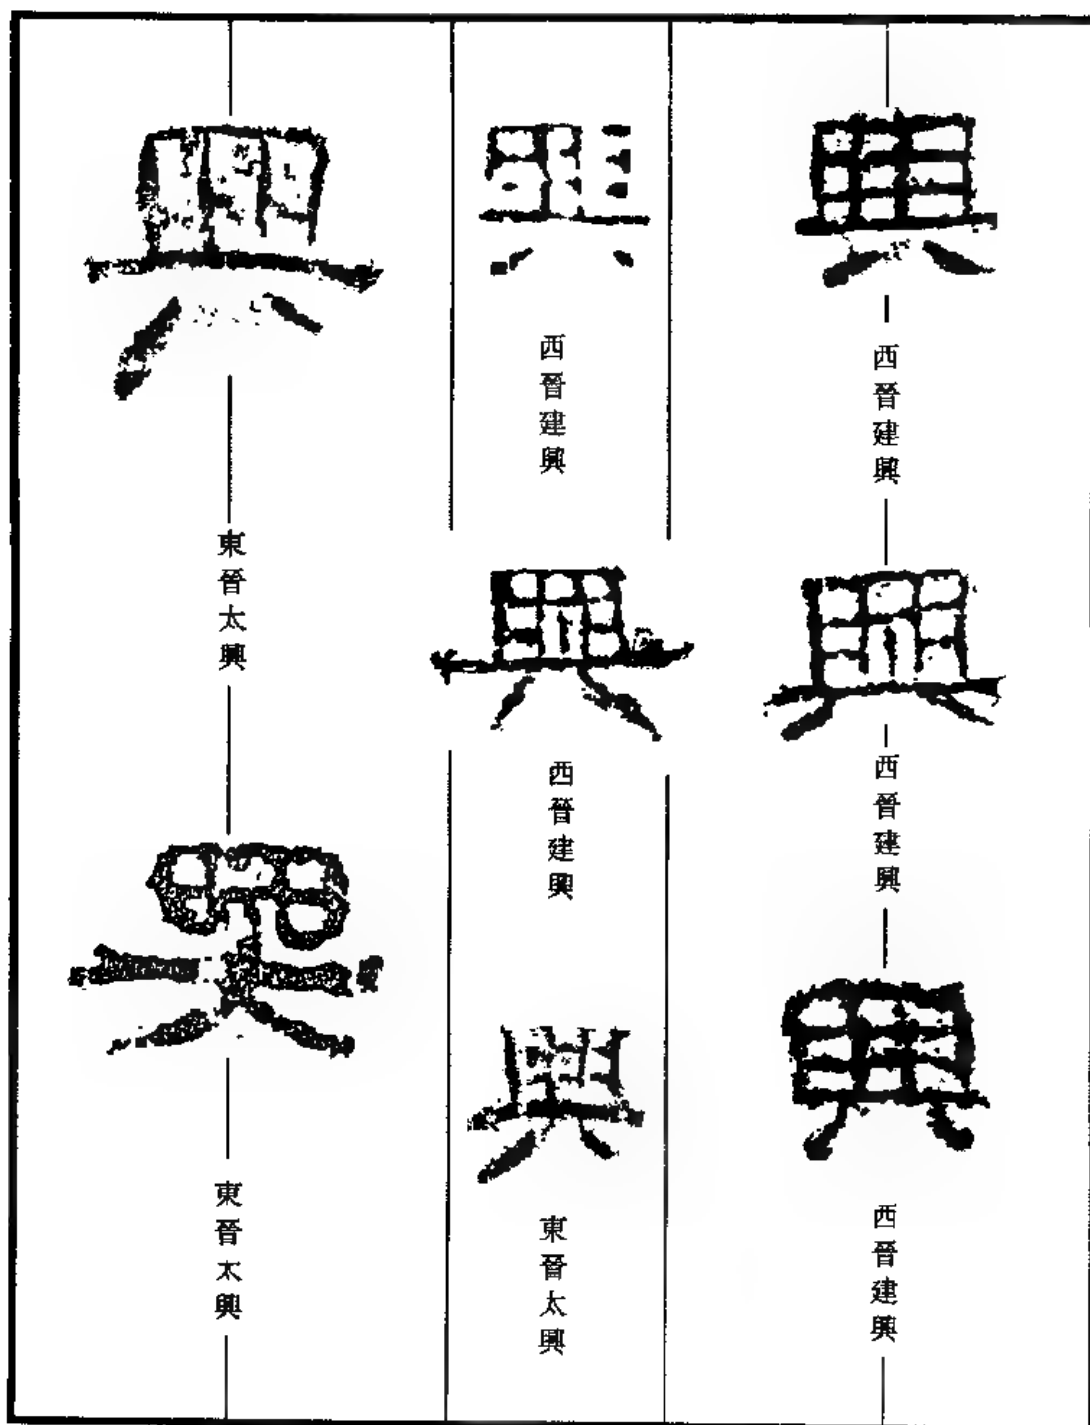 興
西晉建興
興
西晉建興
興
西晉建興
興
西晉建興
興
西晉建興
興
東晉太興
興
東晉太興
興
東晉太興